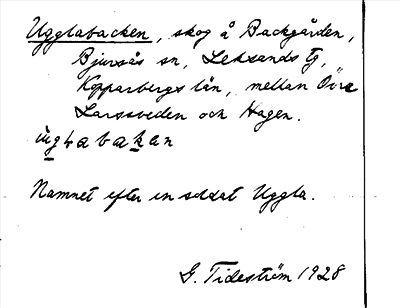 Ugglabacken, skog å Backgården,
Bjursås sn, Leksands tg,
Kopparbergs län, mellan Övre
Larssveden och Hagen.
ùgɫabakan
Namnet efter en soldat Uggla.
G. Tideström 1928